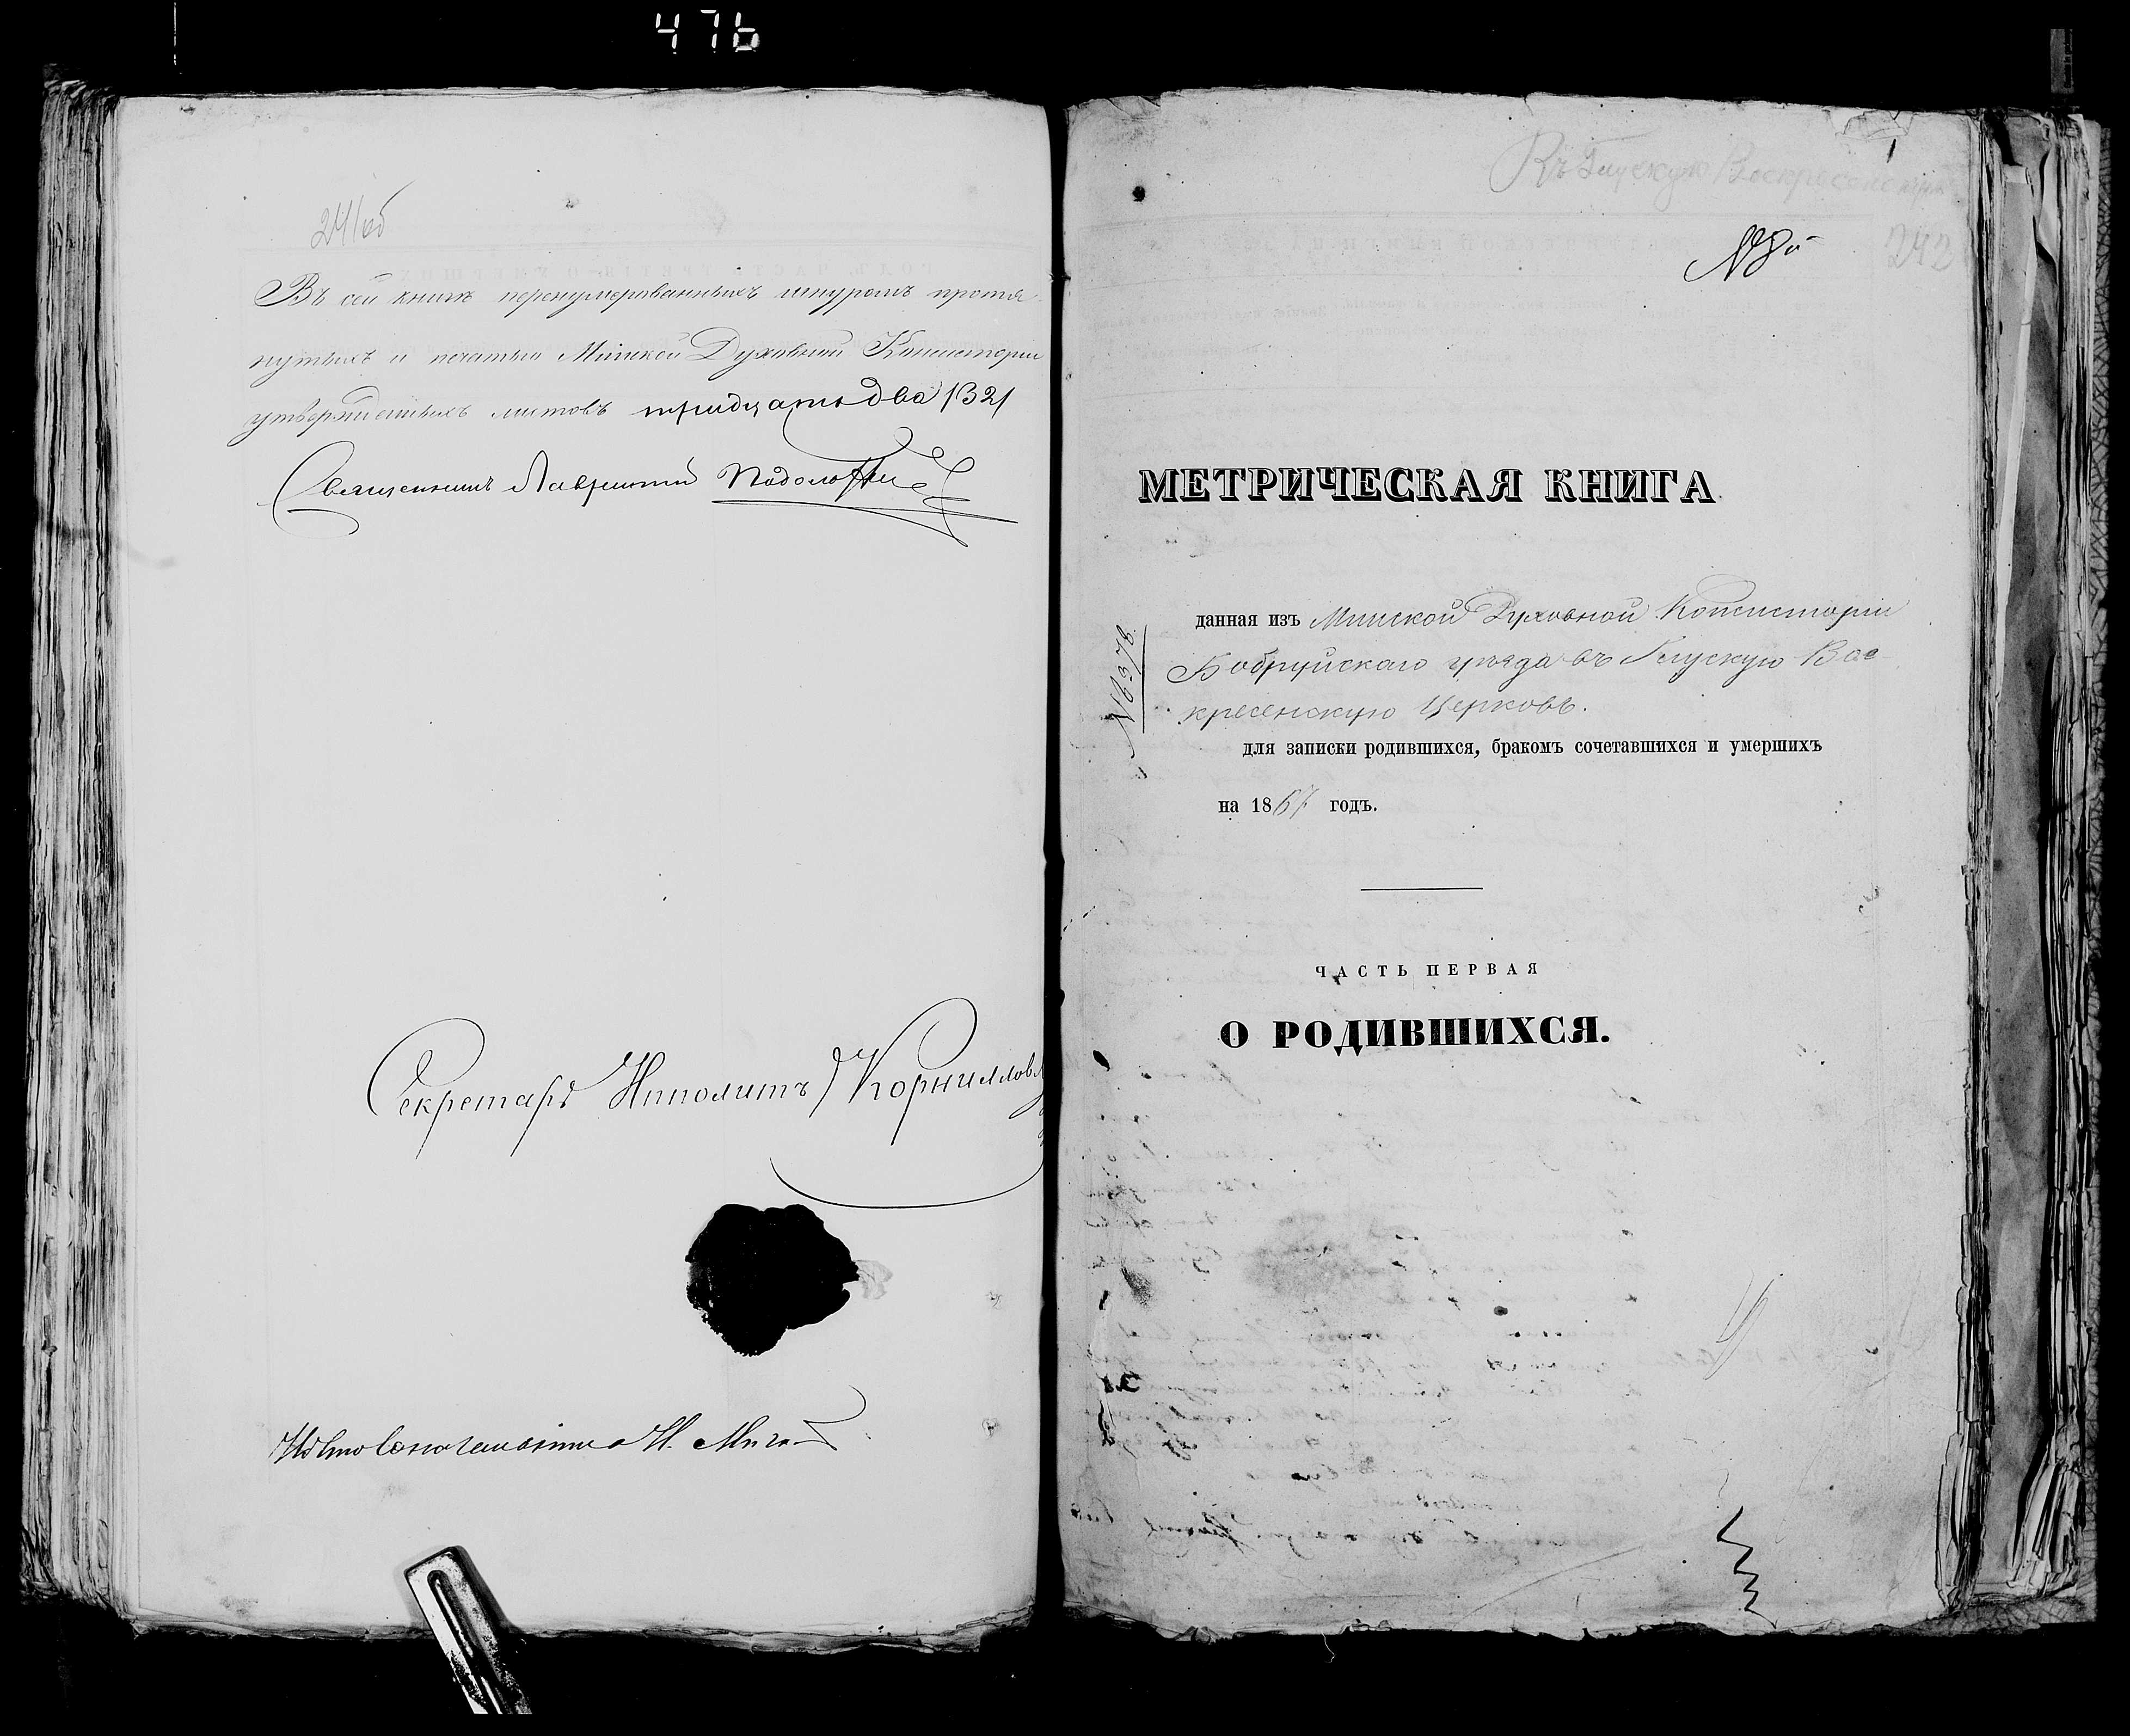 476
241об
Въ сей книгѣ перенумерованныхъ шнуромъ протя-
нутыхъ и печатью Минской Духовной Консисторіи
утвержденныхъ листовъ тридцать два /32/
Священникъ Лаврентій
Секретарь Ипполитъ Корниллов
1
Въ Глускую Воскресенскую
№ 8й
242
МЕТРИЧЕСКАЯ КНИГА
данная изъ Минской Духовной Консисторіи
Бобруйскаго уѣзда въ Глускую Вос-
кресенскую Церковь.
№ 6378
для записки родившихся, бракомъ сочетавшихся и умершихъ
на 1867 годъ.
ЧАСТЬ ПЕРВАЯ
О РОДИВШИХСЯ.